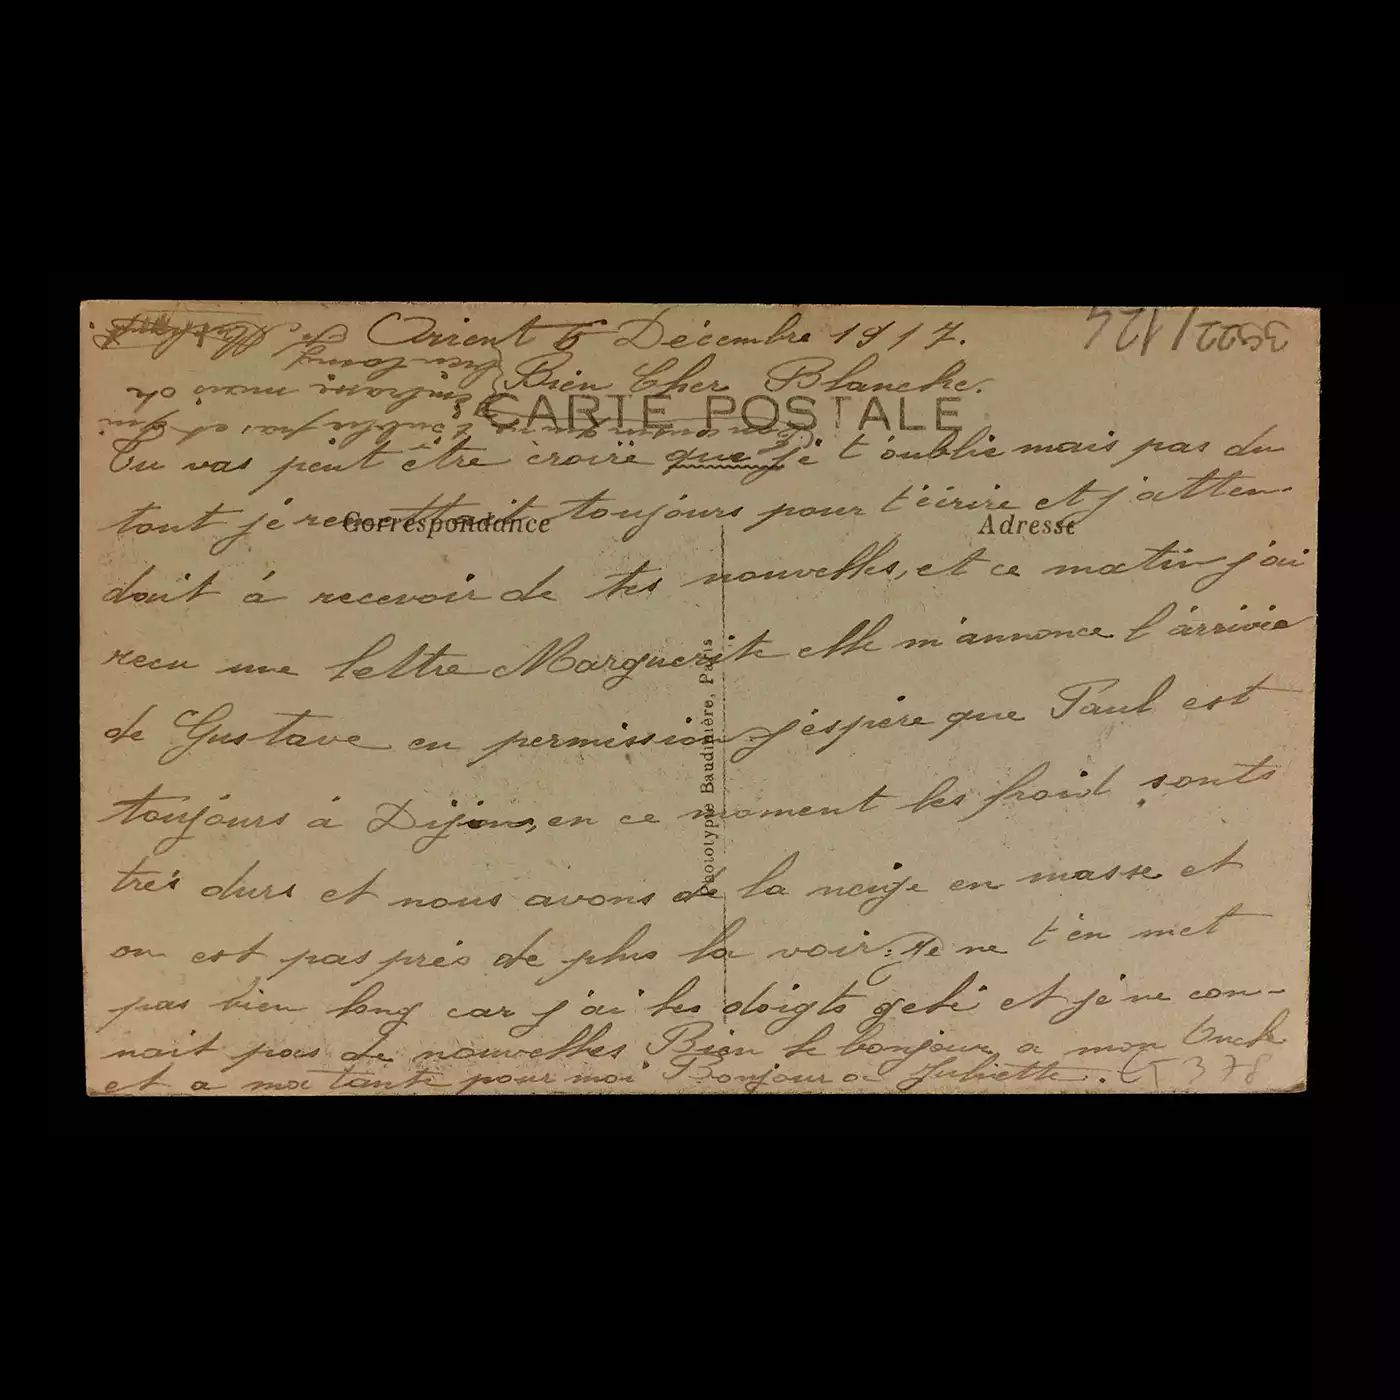 Orient 6 Décembre 1917.
Bien Cher Blanche.
CARTE POSTALE
Tu vas peut être croire que je t'oublie mais pas du
tout je remettait toujours pour t'écrire et j'atten-
Correspondance
Adresse
dait à recevoir de tes nouvelles, et ce matin j'ai
recu une lettre Marguerite elle m'annonce l'arrivée
de Gustave en permission j'espère que Paul est
toujours à Dijon, en ce moment les froid sonts
très durs et nous avons de la neige en masse et
on est pas près de plus la voir. Je ne t'en met
pas bien long car j'ai les doigts gelé et je ne con-
nait pas de nouvelles Bien le bonjour a mon Oncle
et a ma tante pour moi Bonjour a Juliette.
CT 378
Phototypie Baudinière, Paris
3522/124
ton cousin qui ne t'oublie pas et qui
t'embrasse mais de
bien loing